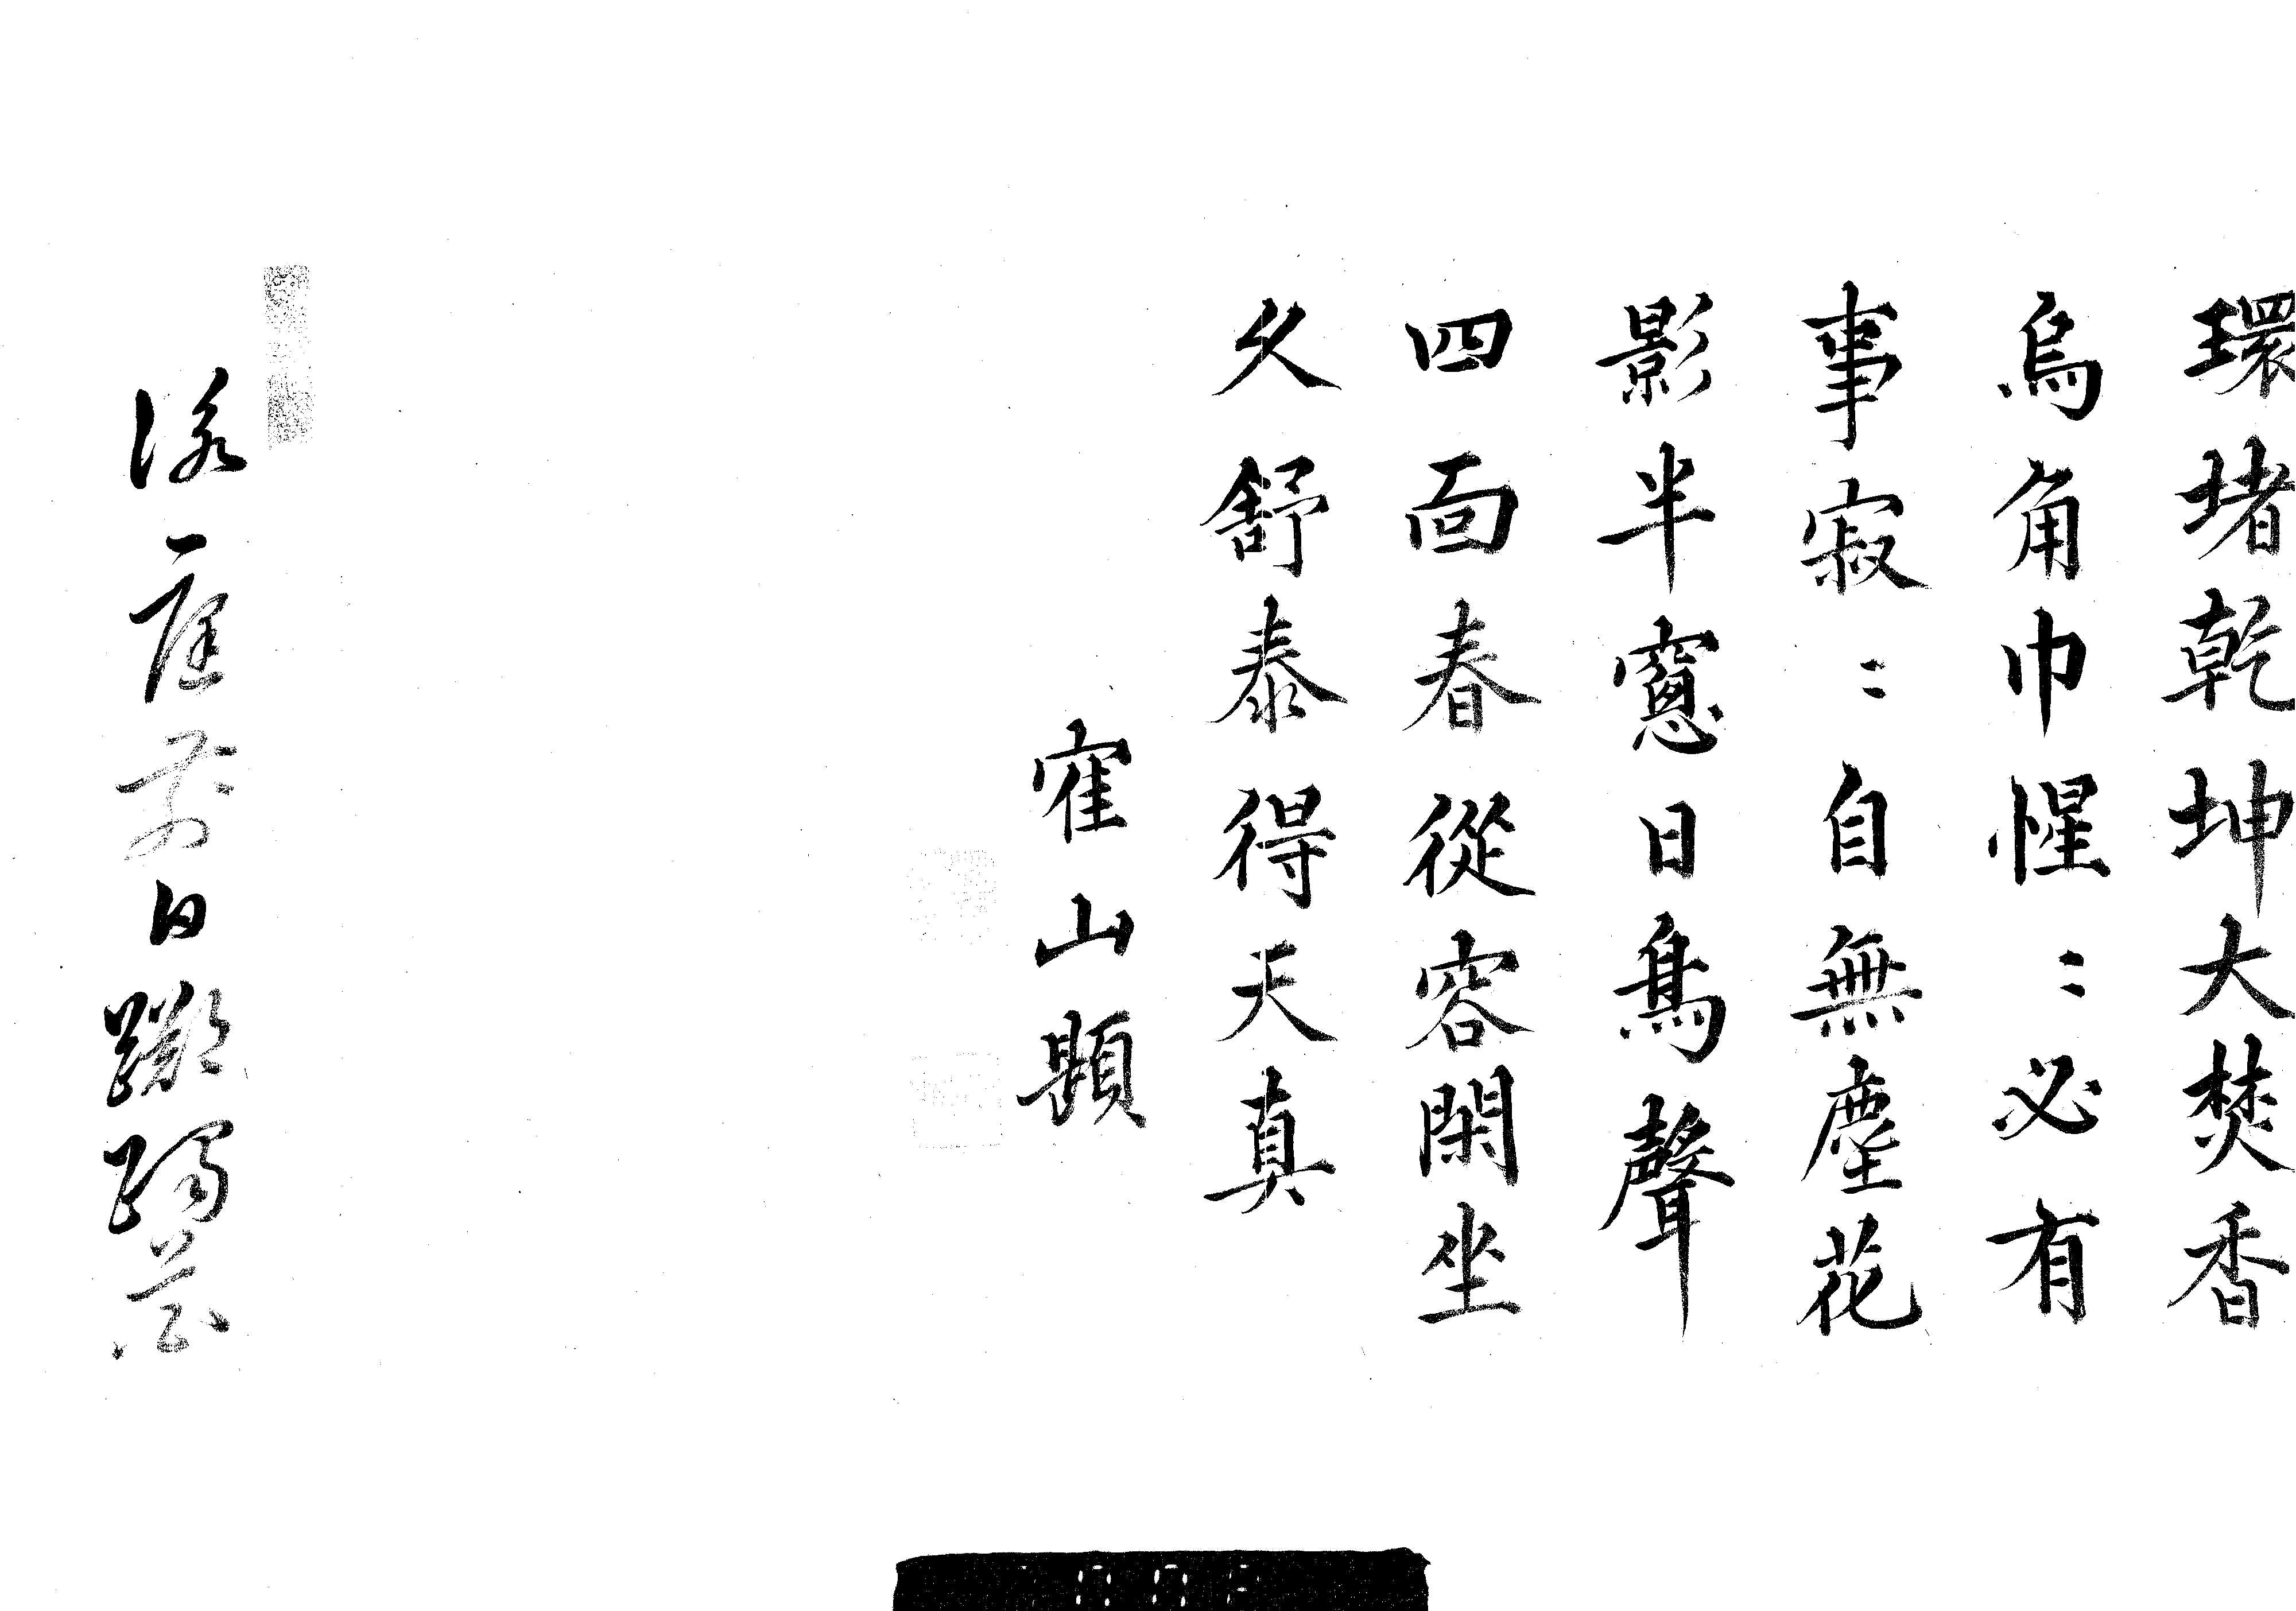 環堵乾坤大焚香
烏角巾惺〻必有
事寂〻自無塵花
影半窻日鳥聲
四面春從容閑坐
久舒泰得天真
隺山顯
前日躑躅